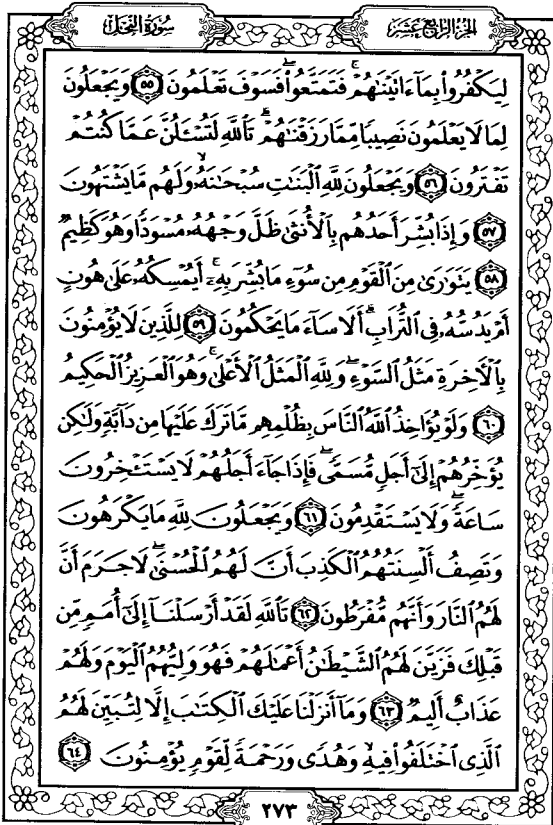 الجزء الرابع عشر
سورة النحل
لِيَكْفُرُوا۟ بِمَآ ءَاتَيْنَٰهُمْ ۚ فَتَمَتَّعُوا۟ ۖ فَسَوْفَ تَعْلَمُونَ ﴿٥٥﴾ وَيَجْعَلُونَ
لِمَا لَا يَعْلَمُونَ نَصِيبًا مِّمَّا رَزَقْنَٰهُمْ ۗ تَٱللَّهِ لَتُسْـَٔلُنَّ عَمَّا كُنتُمْ
تَفْتَرُونَ ﴿٥٦﴾ وَيَجْعَلُونَ لِلَّهِ ٱلْبَنَٰتِ سُبْحَٰنَهُۥ ۙ وَلَهُم مَّا يَشْتَهُونَ
﴿٥٧﴾ وَإِذَا بُشِّرَ أَحَدُهُم بِٱلْأُنثَىٰ ظَلَّ وَجْهُهُۥ مُسْوَدًّا وَهُوَ كَظِيمٌ
﴿٥٨﴾ يَتَوَٰرَىٰ مِنَ ٱلْقَوْمِ مِن سُوٓءِ مَا بُشِّرَ بِهِۦٓ ۚ أَيُمْسِكُهُۥ عَلَىٰ هُونٍ
أَمْ يَدُسُّهُۥ فِى ٱلتُّرَابِ ۗ أَلَا سَآءَ مَا يَحْكُمُونَ ﴿٥٩﴾ لِلَّذِينَ لَا يُؤْمِنُونَ
بِٱلْءَاخِرَةِ مَثَلُ ٱلسَّوْءِ ۖ وَلِلَّهِ ٱلْمَثَلُ ٱلْأَعْلَىٰ ۚ وَهُوَ ٱلْعَزِيزُ ٱلْحَكِيمُ
﴿٦٠﴾ وَلَوْ يُؤَاخِذُ ٱللَّهُ ٱلنَّاسَ بِظُلْمِهِم مَّا تَرَكَ عَلَيْهَا مِن دَآبَّةٍ وَلَٰكِن
يُؤَخِّرُهُمْ إِلَىٰٓ أَجَلٍ مُّسَمًّى ۖ فَإِذَا جَآءَ أَجَلُهُمْ لَا يَسْتَـْٔخِرُونَ
سَاعَةً ۖ وَلَا يَسْتَقْدِمُونَ ﴿٦١﴾ وَيَجْعَلُونَ لِلَّهِ مَا يَكْرَهُونَ
وَتَصِفُ أَلْسِنَتُهُمُ ٱلْكَذِبَ أَنَّ لَهُمُ ٱلْحُسْنَىٰ ۖ لَا جَرَمَ أَنَّ
لَهُمُ ٱلنَّارَ وَأَنَّهُم مُّفْرَطُونَ ﴿٦٢﴾ تَٱللَّهِ لَقَدْ أَرْسَلْنَآ إِلَىٰٓ أُمَمٍ مِّن
قَبْلِكَ فَزَيَّنَ لَهُمُ ٱلشَّيْطَٰنُ أَعْمَٰلَهُمْ فَهُوَ وَلِيُّهُمُ ٱلْيَوْمَ وَلَهُمْ
عَذَابٌ أَلِيمٌ ﴿٦٣﴾ وَمَآ أَنزَلْنَا عَلَيْكَ ٱلْكِتَٰبَ إِلَّا لِتُبَيِّنَ لَهُمُ
ٱلَّذِى ٱخْتَلَفُوا۟ فِيهِ ۙ وَهُدًى وَرَحْمَةً لِّقَوْمٍ يُؤْمِنُونَ ﴿٦٤﴾
٢٧٣